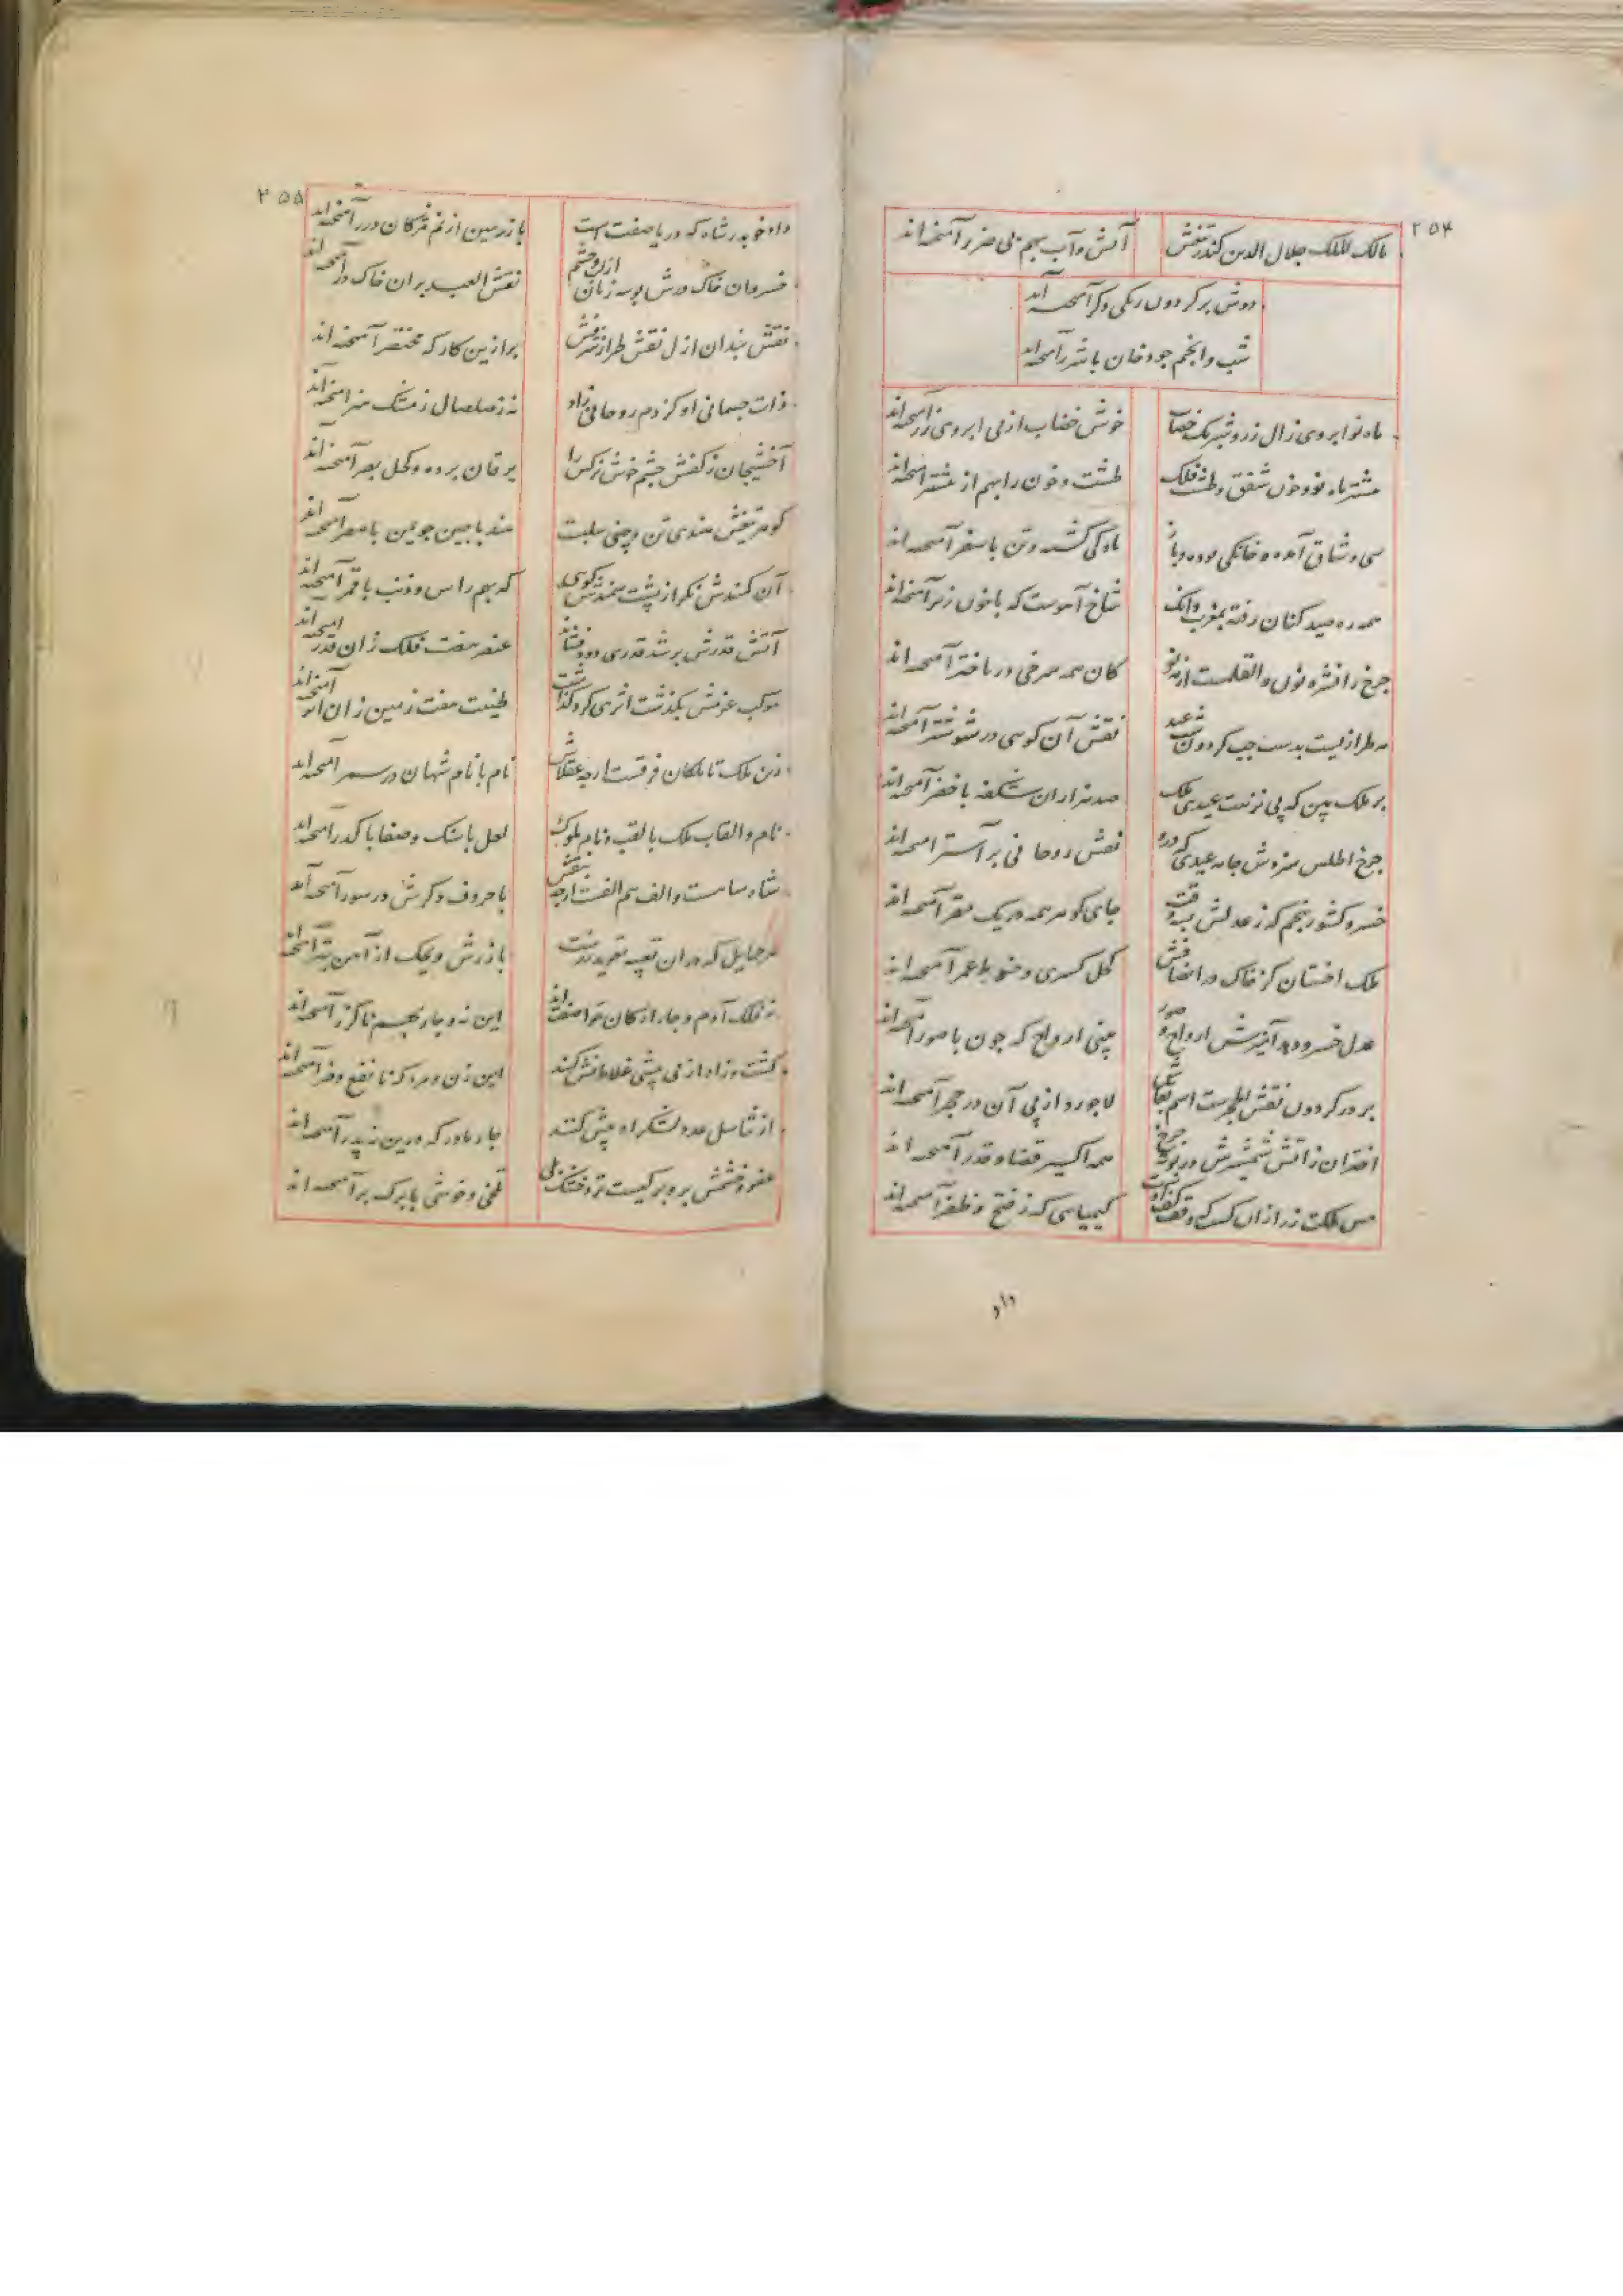 ۲۵۴
مالک الملک جلال الدین کندر تیغش آتش و آب بهم بی ضرر آمیخته‌اند
دوش بر گردون رنگی دگر آمیخته‌اند
شب و انجم چو دخان با شرر آمیخته‌اند
ماه نو ابروی زال زر و شب رنگ خضاب خوش خضاب از پی ابروی زر آمیخته‌اند
نشتر ماه نو و خون شفق و طشت فلک طشت و خون را بهم از نشتر آمیخته‌اند
سی وشاق آمده خانگی بوده و باز ماه کی گشته و تن با سفر آمیخته‌اند
همه ره صید کنان رفته بمغرب وانک شاخ آهوست که با خون زبر آمیخته‌اند
چرخ را نشره نون والقلمست از مه نو کان همه سرخی در باختر آمیخته‌اند
مه طرازیست بدست چپ گردون شب عید نقش آن گویی در شوشتر آمیخته‌اند
بر فلک بین که پی نزهت عیدی ملک صد هزاران شکفه با خضر آمیخته‌اند
چرخ اطلس سزدش جامه عیدی که درو نقش روحانی بر آستر آمیخته‌اند
خسرو کشور پنجم که ز عدلش بسه وقت جای گوهر همه در یک مقر آمیخته‌اند
ملک اخستان کز خاک در انصافش کحل کسری و حنوط عمر آمیخته‌اند
عدل خسرو دهد آمیزش ارواح و صور بینی ارواح که چون با صور آمیخته‌اند
بر در گردون نقش الحجرست اسم بقاش لاجورد از پی آن در حجر آمیخته‌اند
اختران ز آتش شمشیرش در بوته چرخ همه اکسیر قضا و قدر آمیخته‌اند
مس ملکت زر از آن گشت که وقف کف اوست کیمیایی که ز فتح و ظفر آمیخته‌اند
داد
۲۵۵
داد خوبدر شاه که دریا صفت است با زمین از نم مژگان درر آمیخته‌اند
خسروان خاک درش بوسه زنان از لب و چشم نقش العبد بر آن خاک در آمیخته‌اند
نقش بندان ازل نقش طراز شرفش بر ازین کارگه مختصر آمیخته‌اند
ذات جسمانی او کز دم روحانی زاد نه ز صلصال ز مشک هنر آمیخته‌اند
آخشیجان ز کفش چشم خوش نرگس را یرقان برده و کحل بصر آمیخته‌اند
گوهر تیغش هندی تن و چینی سلبت هند با چین چو یمن با مضر آمیخته‌اند
آن کمندش نگر از پشت سمندش گویی که بهم راس و ذنب با قمر آمیخته‌اند
آتش قدرش بر شد قدری دود فشاند عنصر هفت فلک زان قدر آمیخته‌اند
موکب عزمش بگذشت اثری گرد گذاشت طینت هفت زمین زان اثر آمیخته‌اند
زین ملک تا ملکان فرقست ارچه عقلاش نام با نام شهان در سمر آمیخته‌اند
نام و القاب ملک با لقب و نام ملوک لعل با سنگ و صفا با کدر آمیخته‌اند
شاه سامست و الف هم الفست ارچه بنقش با حروف دگرش در سور آمیخته‌اند
هر حمایل که در آن تعبیه تعویذ زرست با زرش ویحک از آهن بتر آمیخته‌اند
نه فلک آدم و چار ارکان حوا صفتند این نه و چار بهم ناگزر آمیخته‌اند
کشت و زاد از پی بیشی غلامانش کنند این زن و مرد کز نا نفع و ضر آمیخته‌اند
از تناسل عدد لشکر او بیش کنند چار مادر که درین نه پدر آمیخته‌اند
عفو و خشمش بر و برگیست تر و خشک بلی تلخی و خوشی با برگ بر آمیخته‌اند